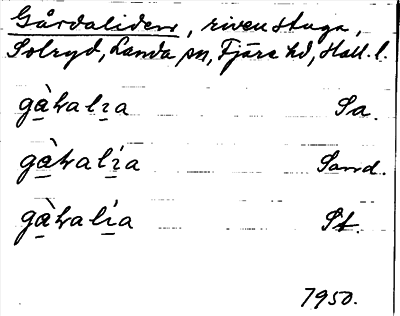 Gårdaliden, riven stuga,
Solryd, Landa sn, Fjäre hd, Hall. l.
gàꞕalıa Sa.
gàꞕalía Sand.
gàꞕalía St.
1950.